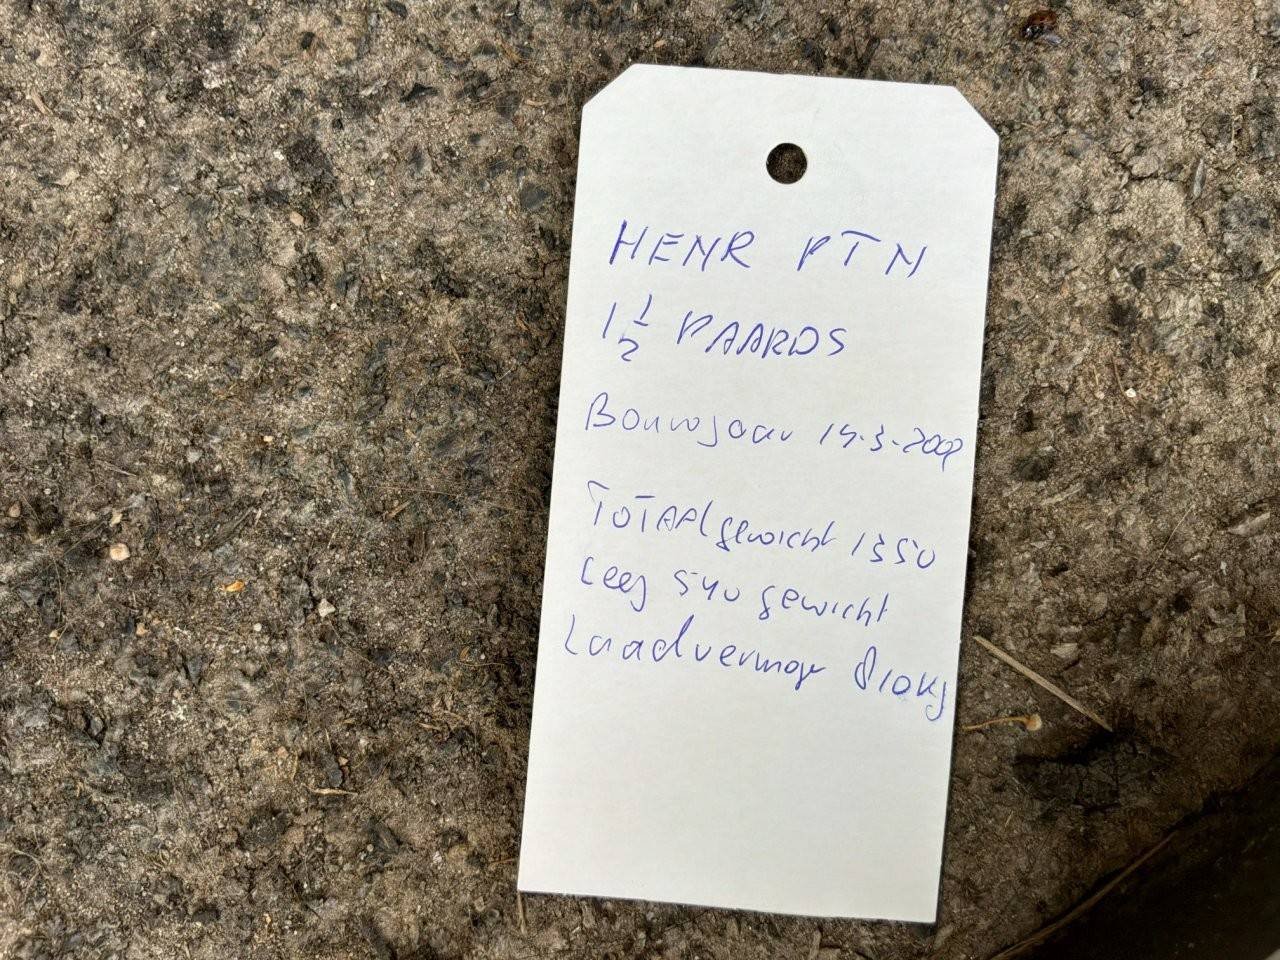 HENR PTM
1 1/2 PAARDS
Bouwjaar 14.3.2002
TOTAAlgewicht 1350
Leeg 540 gewicht
Laadvermoge 810kg